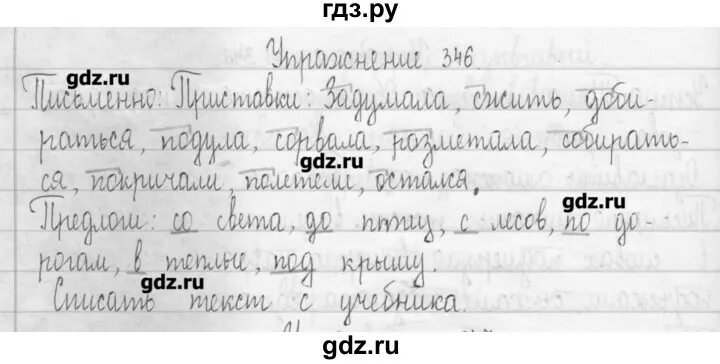 гдз.ру
Упражнение 346
gdz.ru
Письменно: Приставки: Задумала, сжить, доби-
gdz.ru
раться, подула, сорвала, разметала, собирать-
gdz.ru
ся, покричали, полетели, остался.
gdz.ru
Предлоги: со света, до птиц, с лесов, по до-
рогам, в теплые, под крышу.
gdz.ru
Списать текст с учебника.
gdz.ru